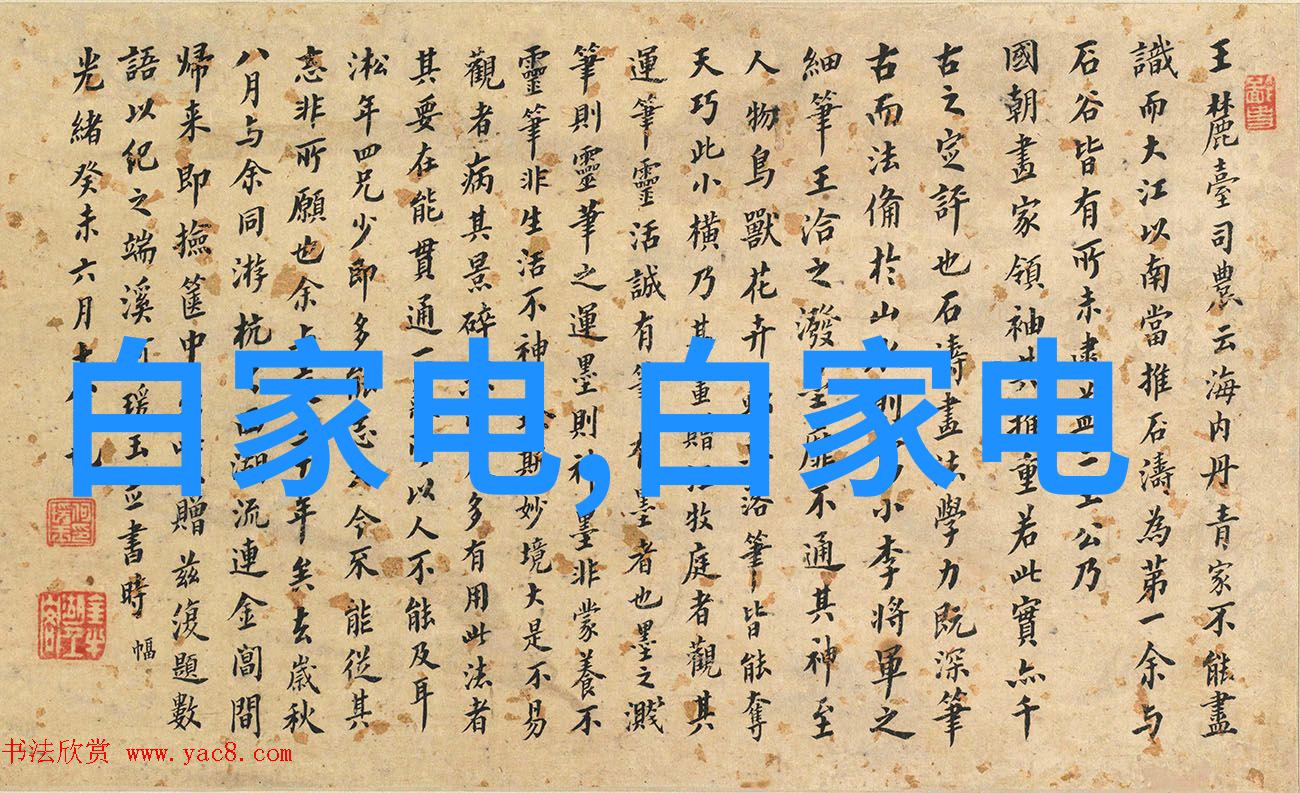 王麓臺司農云海內丹青家不能盡
識而大江以南當推石濤為第一余与
石谷皆有所未 公乃
國朝畫家領袖其推重若此實亦千
古之定評也石濤畫法學力既深筆
古而法備於山水則大小李將軍之
細筆王洽之潑墨靡不通其神至
人物鳥獸花卉 落筆皆能奪
天巧此小橫乃其重贈江牧庭者觀其
運筆靈活誠有筆有墨者也墨之濺
筆則靈筆之運墨則神墨非蒙養不
靈筆非生活不神 斯妙境大是不易
觀者病其景碎 多有用此法者
其要在能貫通一 以人不能及耳
淞年四兄少即多能志 今不能從其
志非所願也余 年矣去歲秋
八月与余同游杭 西湖流連金閶間
歸来即撿篋中 贈茲復題數
語以紀之端溪何瑗玉並書時
幅
光緒癸未六月十
白家电,白家电
书法欣赏 www.yac8.com